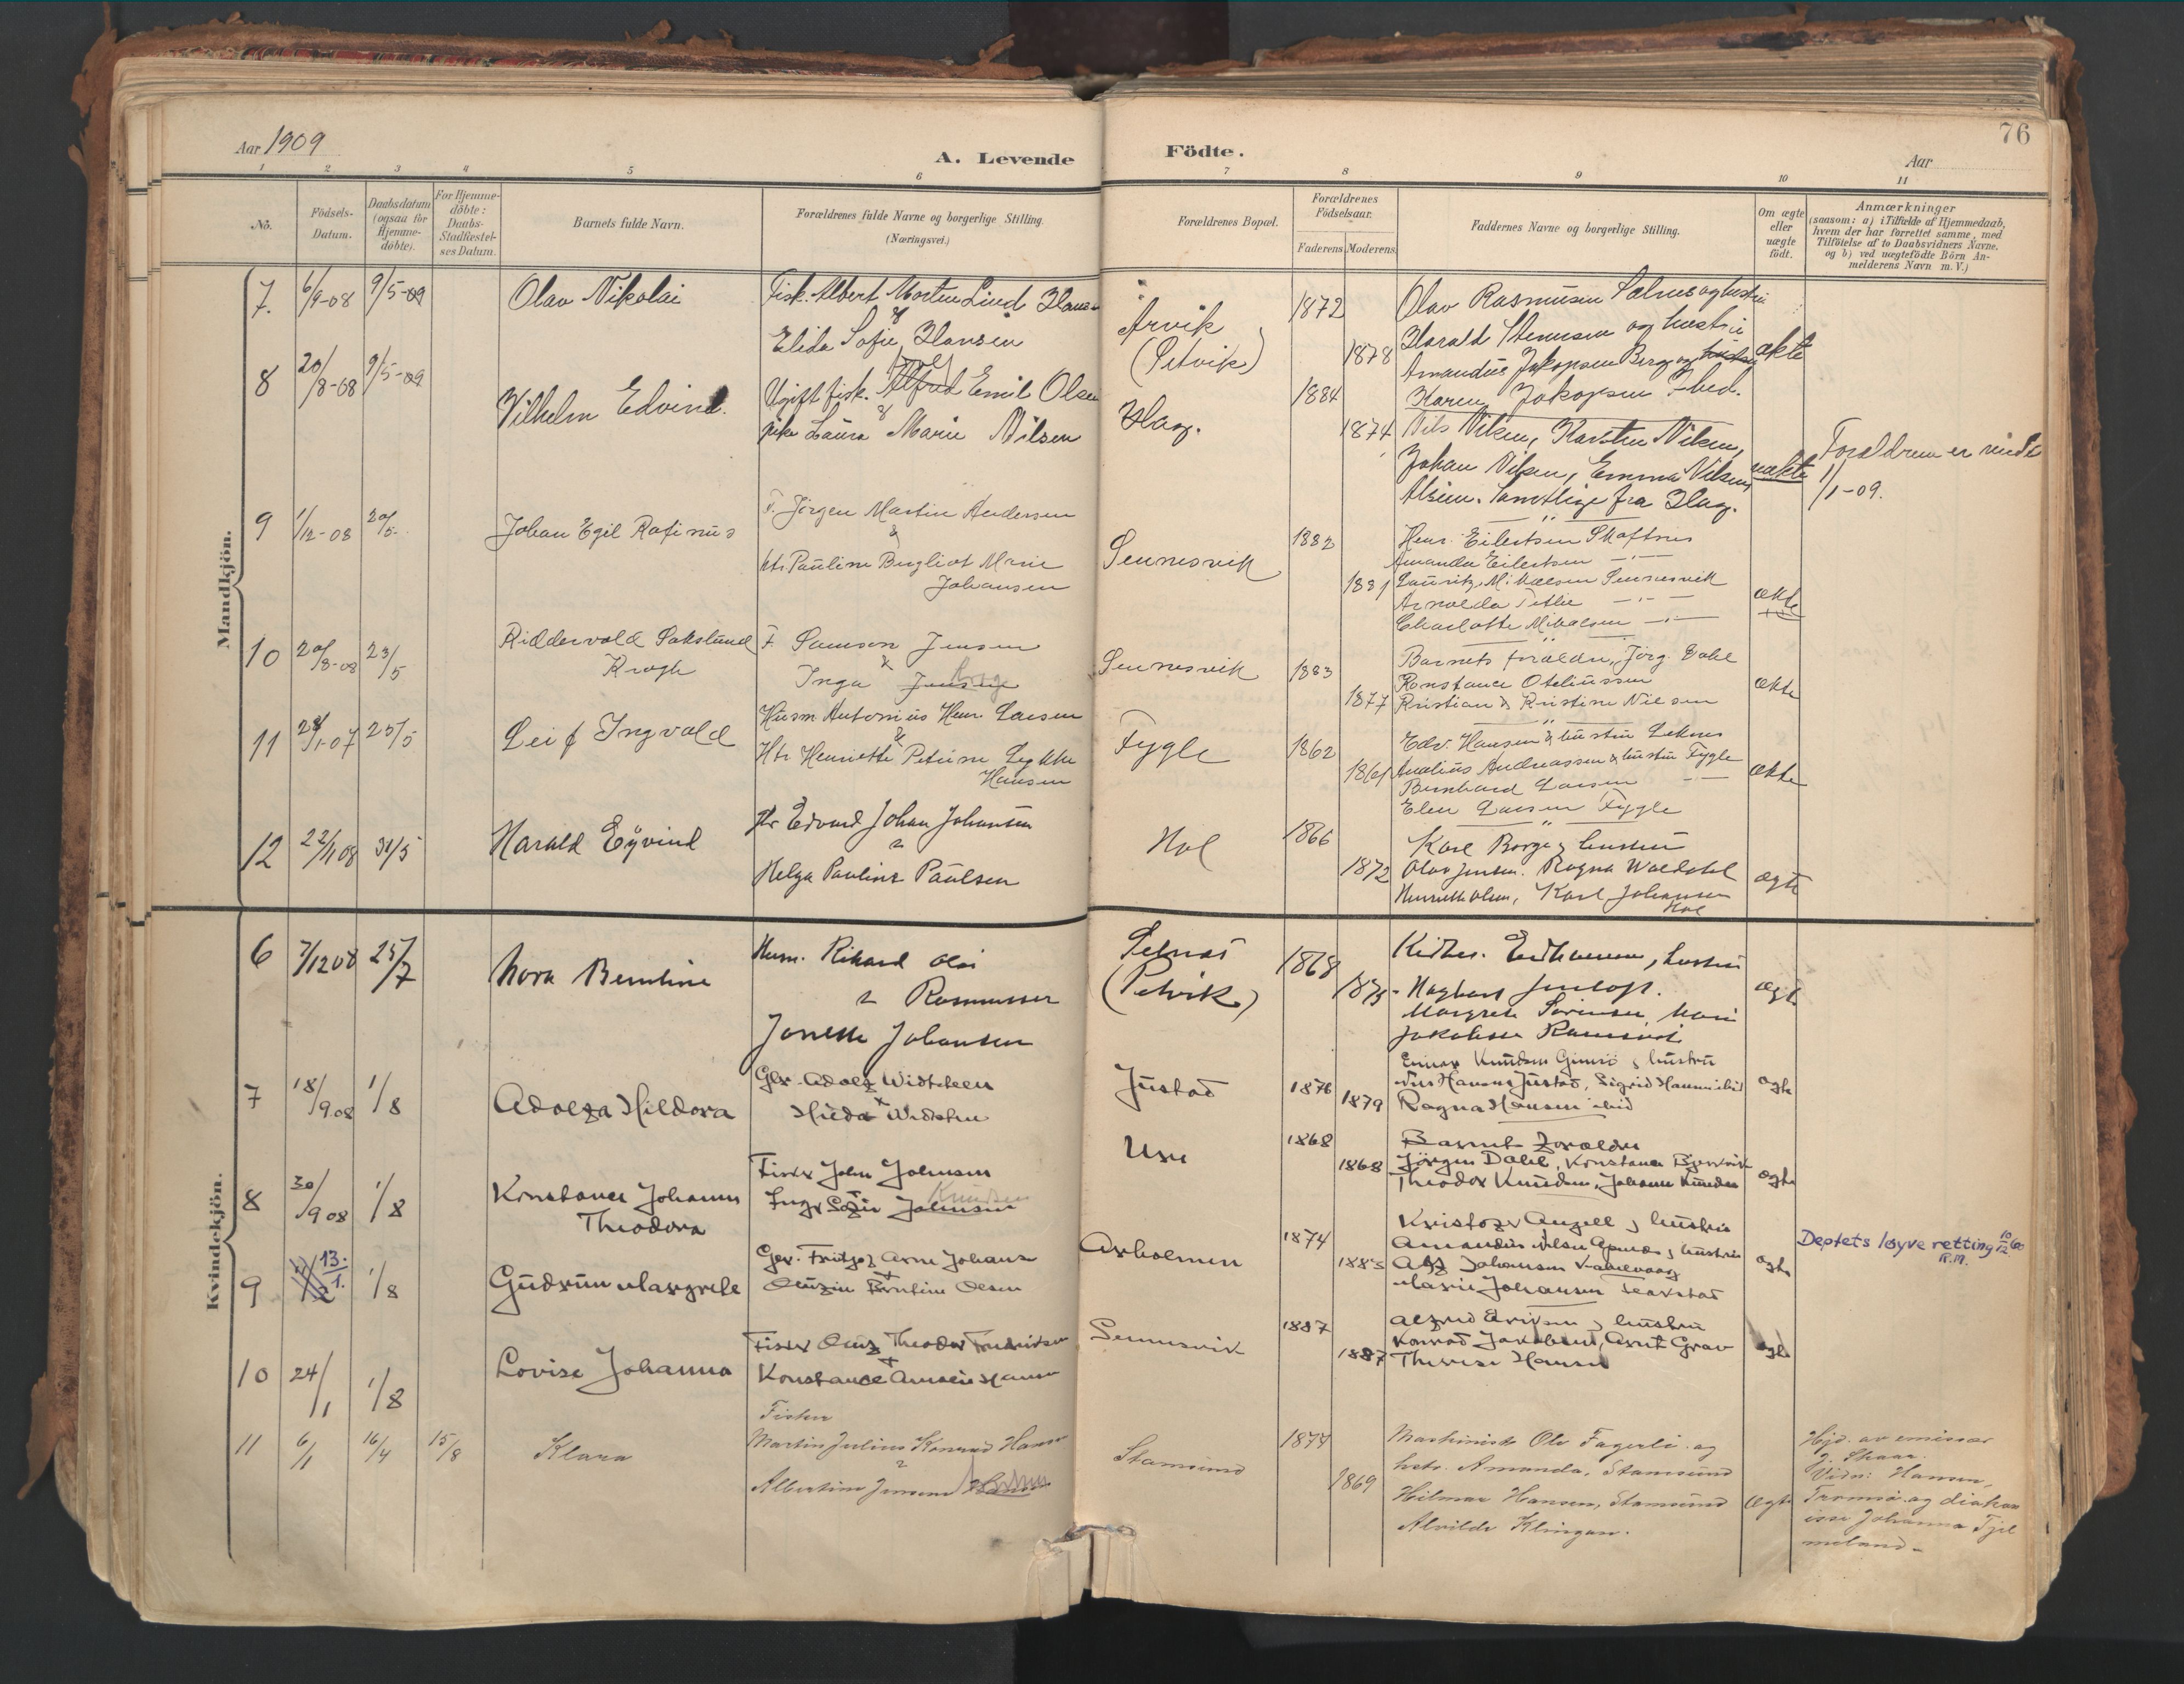 Aar 1909
A. Levende
Födte.
Aar
76
1 2 3 4 5 6 7 8 9 10 11
No.
Födsels-
Datum.
Daabsdatum
(ogsaa for
Hjemme-
döbte).
For Hjemme-
döbte:
Daabs-
Stadfæstel-
ses Datum.
Barnets fulde Navn.
Forældrenes fulde Navne og borgerlige Stilling.
(Næringsvei.)
Forældrenes Bopæl.
Forældrenes
Födselsaar.
Faderens Moderens
Faddernes Navne og borgerlige Stilling.
Om ægte
eller
uægte
födt.
Anmærkninger
(saasom: a) i Tilfælde af Hjemmedaab,
hvem der har forrettet samme, med
Tilföielse af to Daabsvidners Navne.
og b) ved uægtefödte Börn An-
melderens Navn m. V.)
Mandkjön.
7. 6/9-08 9/5-09
Olav Nikolai
Fisk. Albert Morten Lind Hansen
&
Elida Sofie Hansen
Arvik
(Petvik)
1872
1878
Olav Rasmusen Salnes og hustru
Harald Stennesen og hustru
Amandus Jakopsen Berg og hustru
Karen Jakopsen Ibed.
ekte
8 20/8-08 9/5-09
Vilhelm Edvind.
Ugift fisk. Alfred Emil Olsen
&
pike Laura Marie Nilsen
Hag.
1884
1874
Nils Nilsen, Karsten Nilsen,
Johan Nilsen, Emma Nilsen,
Olsen. Samtlige fra Hag.
uekte
Foreldrene er viede
11/1-09.
9 1/12-08 20/5
Johan Egil Rafinus
F. Jörgen Martin Andersen
&
htr. Pauline Bergliot Marie
Johansen
Sennesvik
1882
1881
Henr. Eilertsen Skaftnes
Amanda Eilertsen
Lauritz Mikalsen Sennesvik
Arnolda Petlie
Charlotte Mikalsen
ekte
10 20/8-08 23/5
Riddervold Sakslund
Krogh
F. Samson Jensen
&
Inga Jensen
Sennesvik
1883
1877
Barnets foreldre, Jörg. Dahl
Konstance Oteliussen
Kristian & Kristine Nielsen
ekte
11 29/1-07 23/5
Leif Ingvald
Husm Antonius Henr. Larsen
&
Htr Henriette Petrine Lykke
Hansen
Fygle
1862
1861
Edv. Hansen & hustru Leknes
Anelius Andreassen & hustru Fygle
Bernhard Larsen
Elen Larsen Fygle
ekte
12 22/11 08 31/5
Harald Eyvind
Edvard Johan Johansen
&
Helga Pauline Paulsen
Hol
1866
1872
Karl Borge & hustru
Olav Jensen. Ragna Woldstad
Henriette Olsen, Karl Johansen
Hol
ægte
Kvindekjön.
6 7/12 08 25/7
Nora Berntine
Husm. Rikard Olai
& Rasmussen
Jonette Johansen
(Petvik)
1868
1875
Margrete Sörensen, Marie
Jakobsen
ægte
7 18/9 08 1/8
Adolfa Hildora
Gbr. Adolf Widsteen
&
Hilda Widsteen
Justad
1876
1879
Einar Knudsen Gimsö & hustru
Nils Hansen Justad, Sigrid Hansen ibid
Ragna Hansen ibid
ægte
8 30/9 08 1/8
Konstance Johanne
Theodora
Fisker John Johnsen
+
Inga Sofie Johnsen Knudsen
Ure
1868
1868
Barnets Foreldre
Jörgen Dahl, Konstance
Theodor Knudsen, Johanne Knudsen
ægte
9 13./1. 1/8
Gudrun Margrete
Gbr. Fritjof Arne Johans
+
Olufine Berntine Olsen
Axholmen
1874
1883
Kristofer Angell & hustru
Amandus Nilsen & hustru
Alf Johansen
Marie Johansen
ægte
Deptets löyve retting 10/12 60
R.M.
10 24/1 1/8
Lovise Johanna
Fisker Oluf Theodor Fredriksen
+
Konstance Hansen
Sennesvik
1887
1887
Alfred Eriksen & hustru
Konrad Jakobsen, Arnt Grav
Therese Hansen
ægte
11 6/1 16/4 15/8
Klara
Fisker
Martin Julius Konrad Hansen
&
Albertine Jensen
Stamsund
1874
1869
Maskinist Olv Fagerli og
hstr. Amanda, Stamsund
Hilmar Hansen, Stamsund
Alvilde Klingan.
ægte
Hjd. av emissær
J. Skaar.
Vidn: Hansen,
Tromsö og diakon
isse Johanna Tjel
meland-